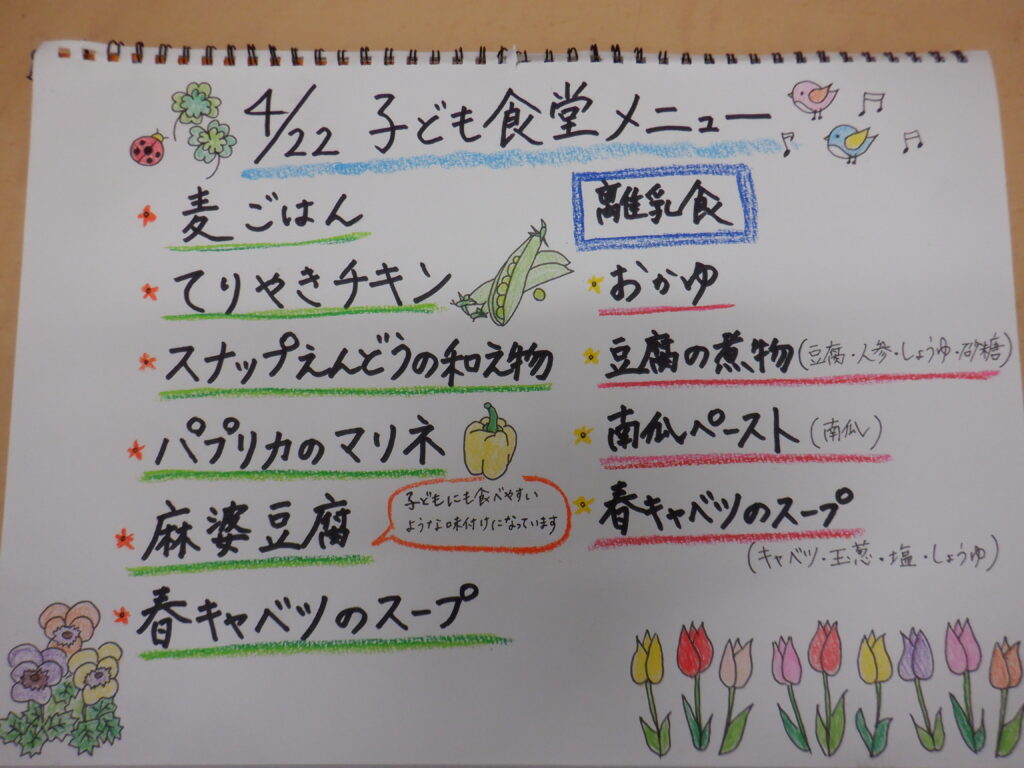 4/22 子ども食堂メニュー
麦ごはん
てりやきチキン
スナップえんどうの和え物
パプリカのマリネ
麻婆豆腐
子どもにも食べやすい
ような味付けになっています
春キャベツのスープ
離乳食
おかゆ
豆腐の煮物(豆腐・人参・しょうゆ・砂糖)
南瓜ペースト(南瓜)
春キャベツのスープ
(キャベツ・玉葱・塩・しょうゆ)